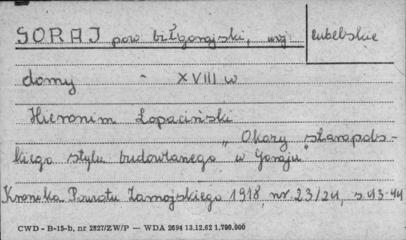 GORAJ pow biłgorajski, woj lubelskie
domy - XVIII w
Hieronim Łopaciński
"Okazy staropols-
kiego stylu budowlanego w Goraju"
Kronika Powiatu Zamojskiego 1918, nr. 23/24, s 43-44
CWD - B-15-b, nr 2827/ZW/P — WDA 2694 13.12.62 1.700.000